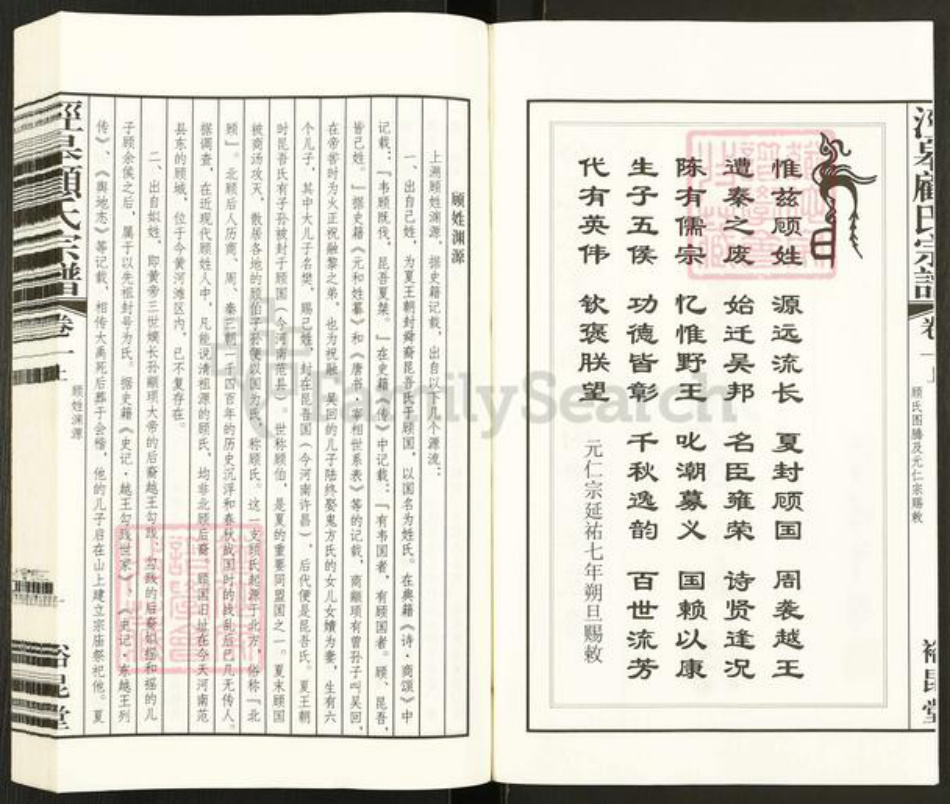 泾皋顾氏宗谱
卷一上
顾氏图腾及元仁宗赐敕
裕昆堂
惟兹顾姓 源远流长 夏封顾国 周袭越王
遭秦之废 始迁吴邦 名臣雍荣 诗贤逢况
陈有儒宗 忆惟野王 叱潮募义 国赖以康
生子五侯 功德皆彰 千秋逸韵 百世流芳
代有英伟 钦褒朕望
元仁宗延祐七年朔旦赐敕
顾姓渊源
上溯顾姓渊源，据史籍记载，出自以下几个源流：
一、出自己姓，为夏王朝封舜裔昆吾氏于顾国，以国名为姓氏。在典籍《诗·商颂》中
记载：『韦顾既伐，昆吾夏桀。』在史籍《传》中记载：『有韦国者，有顾国者。顾、昆吾，
皆己姓。』据史籍《元和姓纂》和《唐书·宰相世系表》等的记载，商颛顼有曾孙子叫吴回，
在帝喾时为火正祝融黎之弟，也为祝融。吴回的儿子陆终娶鬼方氏的女儿女嬇为妻，生有六
个儿子，其中大儿子名樊，赐己姓，封在昆吾国（今河南许昌），后代便是昆吾氏。夏王朝
时昆吾氏有子孙被封于顾国（今河南范县）。世称顾伯，是夏的重要同盟国之一。夏末顾国
被商汤攻灭，散居各地的顾伯子孙便以国为氏，称顾氏。这一支顾氏起源于北方，俗称『北
顾』。北顾后人历商、周、秦三朝一千四百年的历史沉浮和春秋战国时的战乱后已几无传人。
据调查，在近现代顾姓人中，凡能说清祖源的顾氏，均非北顾后裔。顾国旧址在今天河南范
县东的顾城，位于今黄河滩区内，已不复存在。
二、出自姒姓，即黄帝三世嫡长孙颛顼大帝的后裔越王勾践，勾践的后裔姒摇和摇的儿
子顾余侯之后，属于以先祖封号为氏。据史籍《史记·越王勾践世家》、《史记·东越王列
传》、《舆地志》等记载，相传大禹死后葬于会稽，他的儿子启在山上建立宗庙祭祀他。夏
泾皋顾氏宗谱
卷一上
顾姓渊源
裕昆堂
FamilySearch